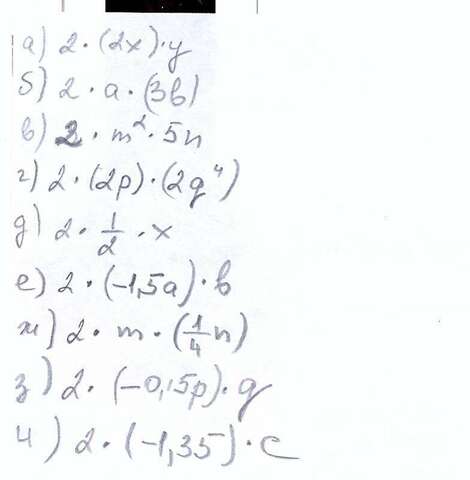 а) 2 · (2x) · y
б) 2 · a · (3b)
в) 2 · m² · 5n
г) 2 · (2p) · (2q⁴)
д) 2 · 1/2 · x
е) 2 · (-1,5a) · b
ж) 2 · m · (1/4 n)
з) 2 · (-0,15p) · q
и) 2 · (-1,35) · c